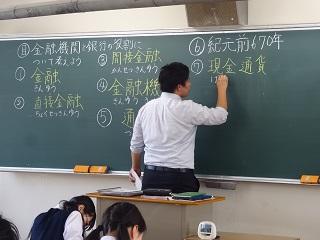 目金融機関と銀行の役割に
ついて考えよう
① 金融
きんゆう
② 直接金融
ちょくせつきんゆう
③ 間接金融
かんせつきんゆう
④ 金融機
きんゆう
⑤ 通
⑥ 紀元前670年
⑦ 現金通貨